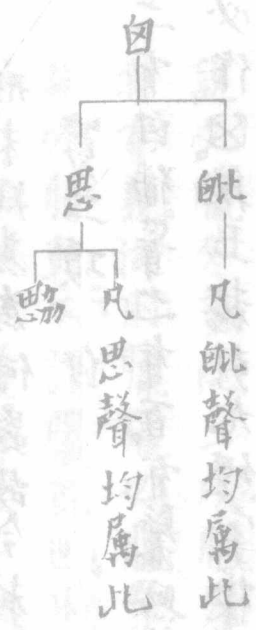 囟
𣬉
凡𣬉聲均属此
思
凡思聲均属此
勰